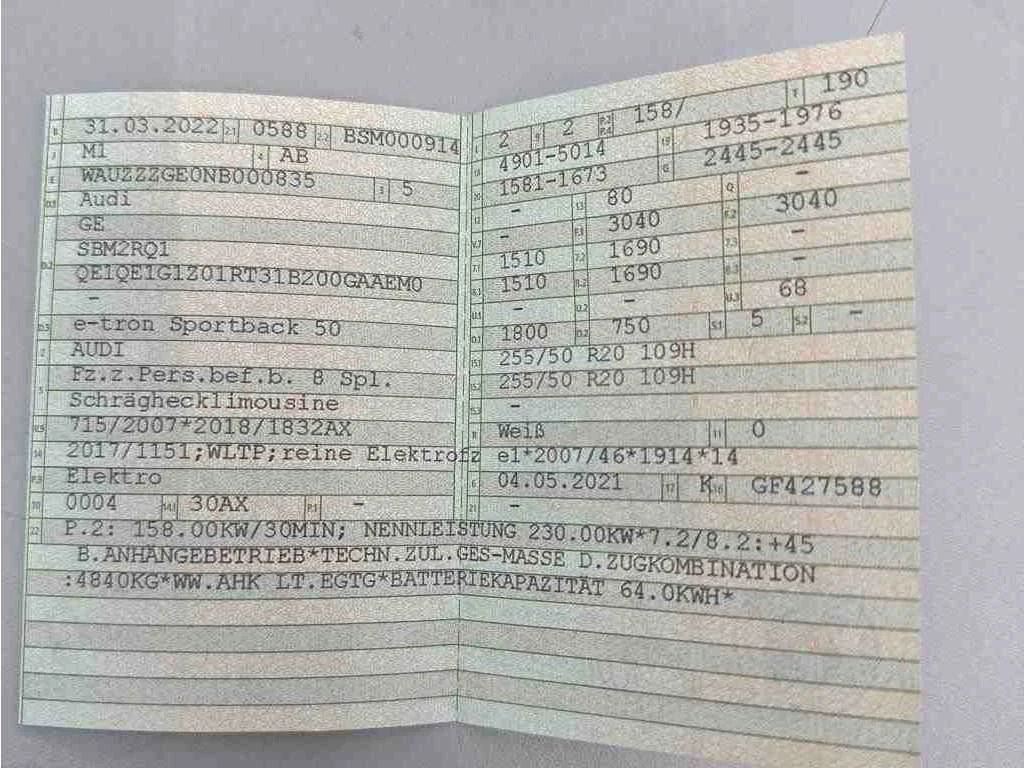 B 31.03.2022 2.1 0588 2.2 BSM000914
J M1 4 AB
E WAUZZZGE0NB000835 3 5
D.1 Audi
GE
D.2 SBM2RQ1
QE1QE1G1Z01RT31B200GAAEM0
-
D.3 e-tron Sportback 50
2 AUDI
5 Fz.z.Pers.bef.b. 8 Spl.
Schräghecklimousine
V.9 715/2007*2018/1832AX
14 2017/1151;WLTP;reine Elektrofz
P.3 Elektro
10 0004 14.1 30AX P.1 -
22 P.2: 158.00KW/30MIN; NENNLEISTUNG 230.00KW*7.2/8.2:+45
B.ANHÄNGEBETRIEB*TECHN.ZUL.GES-MASSE D.ZUGKOMBINATION
:4840KG*WW.AHK LT.EGTG*BATTERIEKAPAZITÄT 64.0KWH*
L 2 9 2 P.2 P.4 158/ T 190
18 4901-5014 19 1935-1976
20 1581-1673 G 2445-2445
12 - 13 80 Q -
V.7 - F.1 3040 F.2 3040
7.1 1510 7.2 1690 7.3 -
8.1 1510 8.2 1690 8.3 -
U.1 - U.2 - U.3 68
O.1 1800 O.2 750 S.1 5 S.2 -
15.1 255/50 R20 109H
15.2 255/50 R20 109H
15.3 -
R Weiß 11 0
K e1*2007/46*1914*14
6 04.05.2021 17 K 16 GF427588
21 -